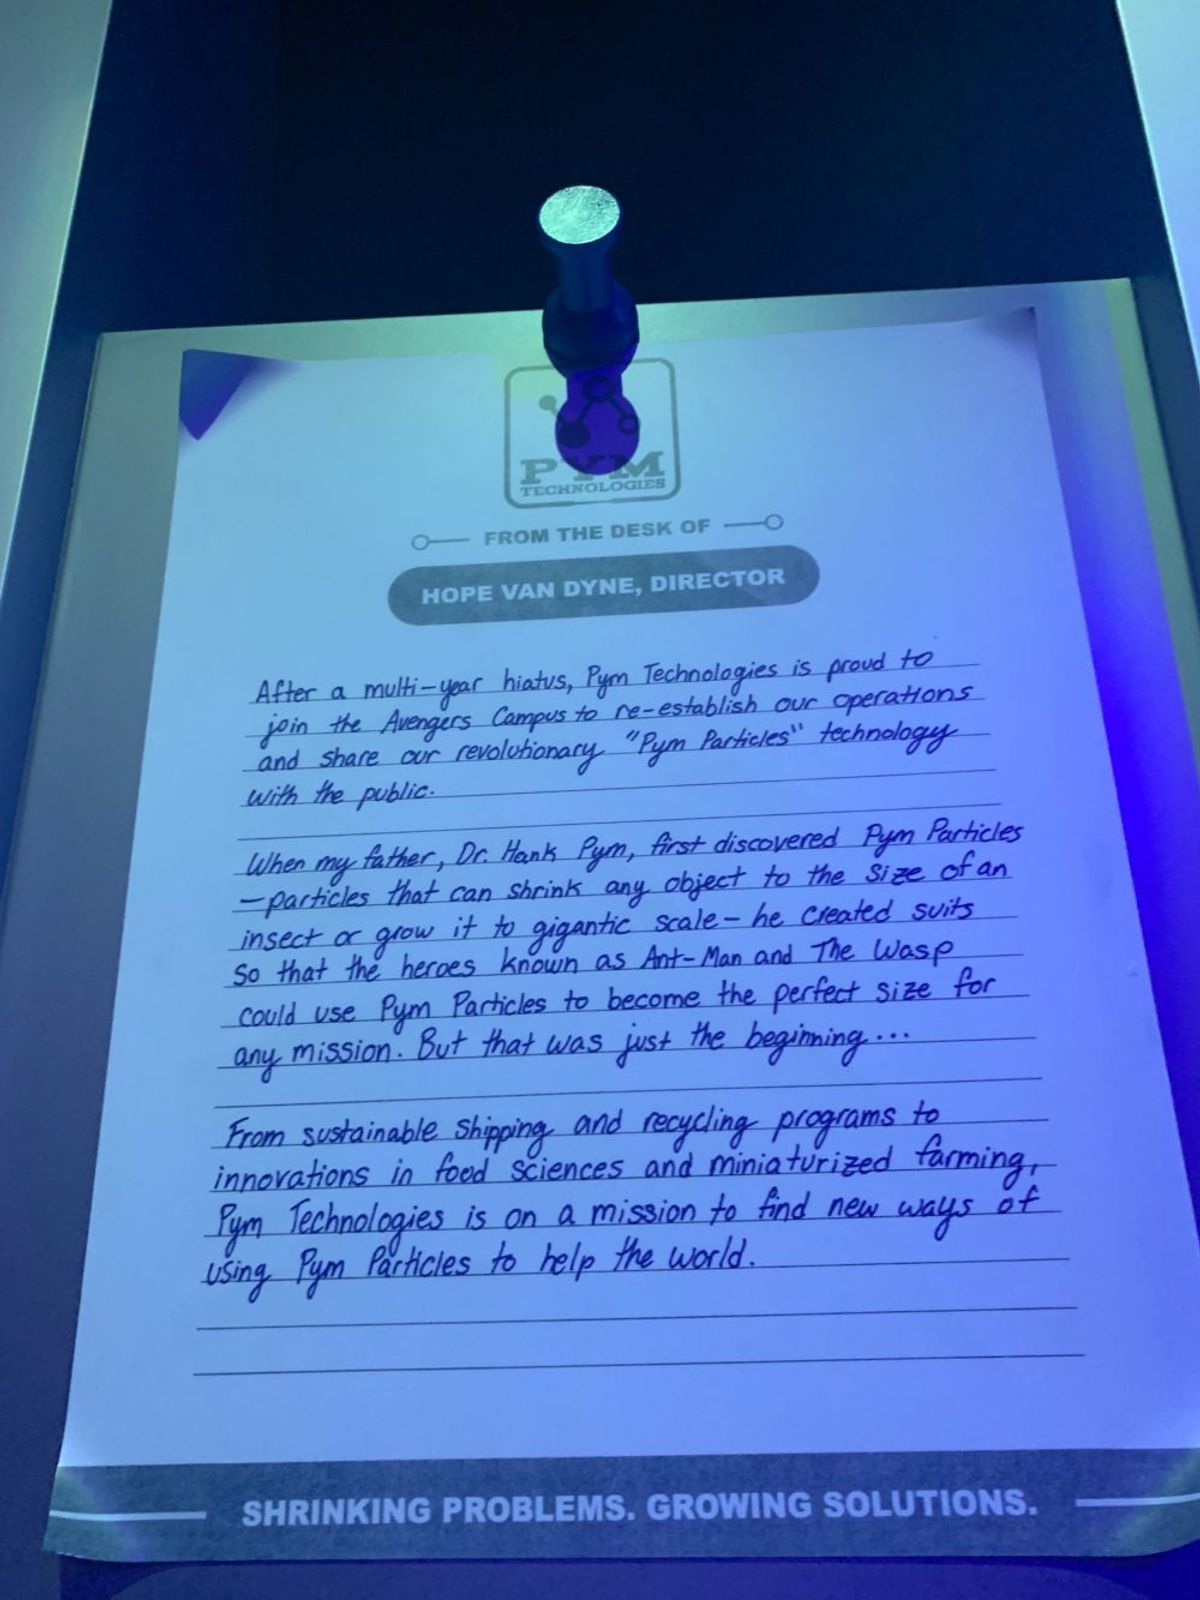 PYM
TECHNOLOGIES
FROM THE DESK OF
HOPE VAN DYNE, DIRECTOR
After a multi-year hiatus, Pym Technologies is proud to
join the Avengers Campus to re-establish our operations
and share our revolutionary "Pym Particles" technology
with the public.
When my father, Dr. Hank Pym, first discovered Pym Particles
—particles that can shrink any object to the size of an
insect or grow it to gigantic scale— he created suits
so that the heroes known as Ant-Man and The Wasp
could use Pym Particles to become the perfect size for
any mission. But that was just the beginning...
From sustainable shipping and recycling programs to
innovations in food sciences and miniaturized farming,
Pym Technologies is on a mission to find new ways of
using Pym Particles to help the world.
SHRINKING PROBLEMS. GROWING SOLUTIONS.